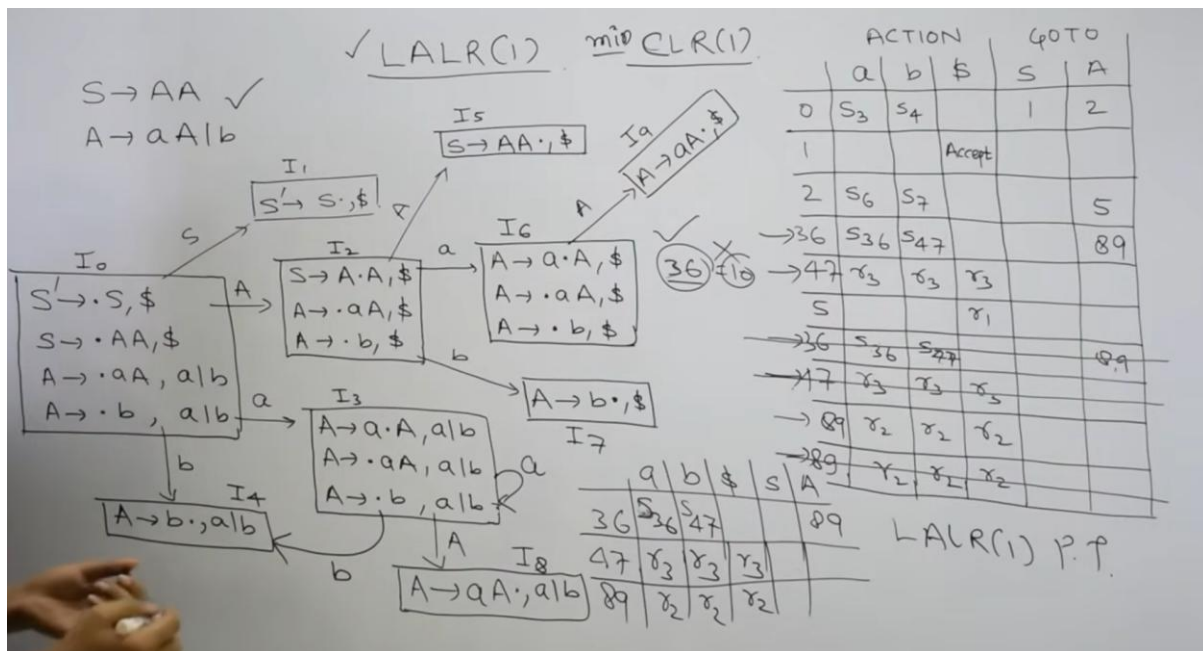 ✓ LALR(1) min CLR(1)
S → AA ✓
A → aA|b
I0
S' → ·S, $
S → ·AA, $
A → ·aA, a|b
A → ·b, a|b
S
I1
S' → S·, $
A
I2
S → A·A, $
A → ·aA, $
A → ·b, $
A
I5
S → AA·, $
a
I6
A → a·A, $
A → ·aA, $
A → ·b, $
A
I9
A → aA·, $
✓
36 I10
b
A → b·, $
I7
a
I3
A → a·A, a|b
A → ·aA, a|b
A → ·b, a|b
a
b
I4
A → b·, a|b
b
A
I8
A → aA·, a|b
ACTION GOTO
a b $ S A
0 S3 S4 1 2
1 Accept
2 S6 S7 5
→36 S36 S47 89
→47 r3 r3 r3
5 r1
→36 S36 S47 89
→47 r3 r3 r3
→89 r2 r2 r2
→89 r2 r2 r2
a b $ S A
36 S36 S47 89
47 r3 r3 r3
89 r2 r2 r2
LALR(1) P.T.